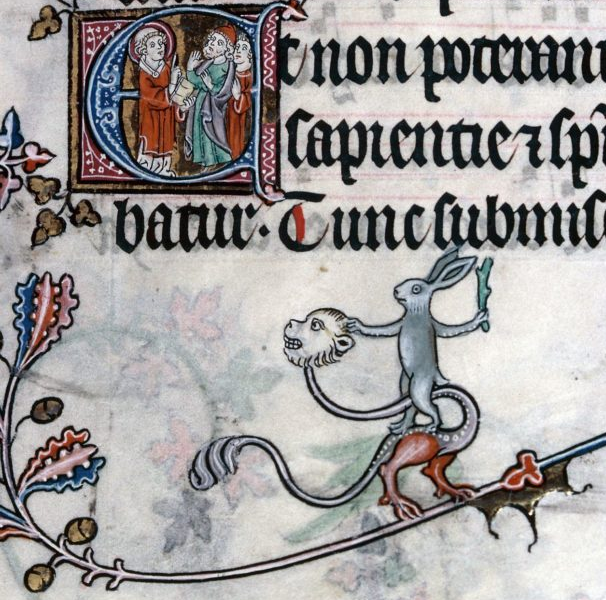 Et non poterant
sapientie ⁊ sp̄
batur. Tunc submis